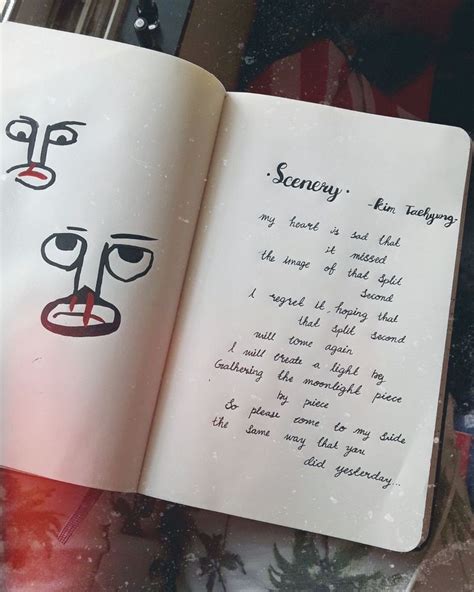 Scenery.
- Kim Taehyung -
my heart is sad that
it missed
the image of that split
second
I regret it, hoping that
that split second
will come again
I will create a light by
Gathering the moonlight piece
by piece
So please come to my side
the same way that you
did yesterday...